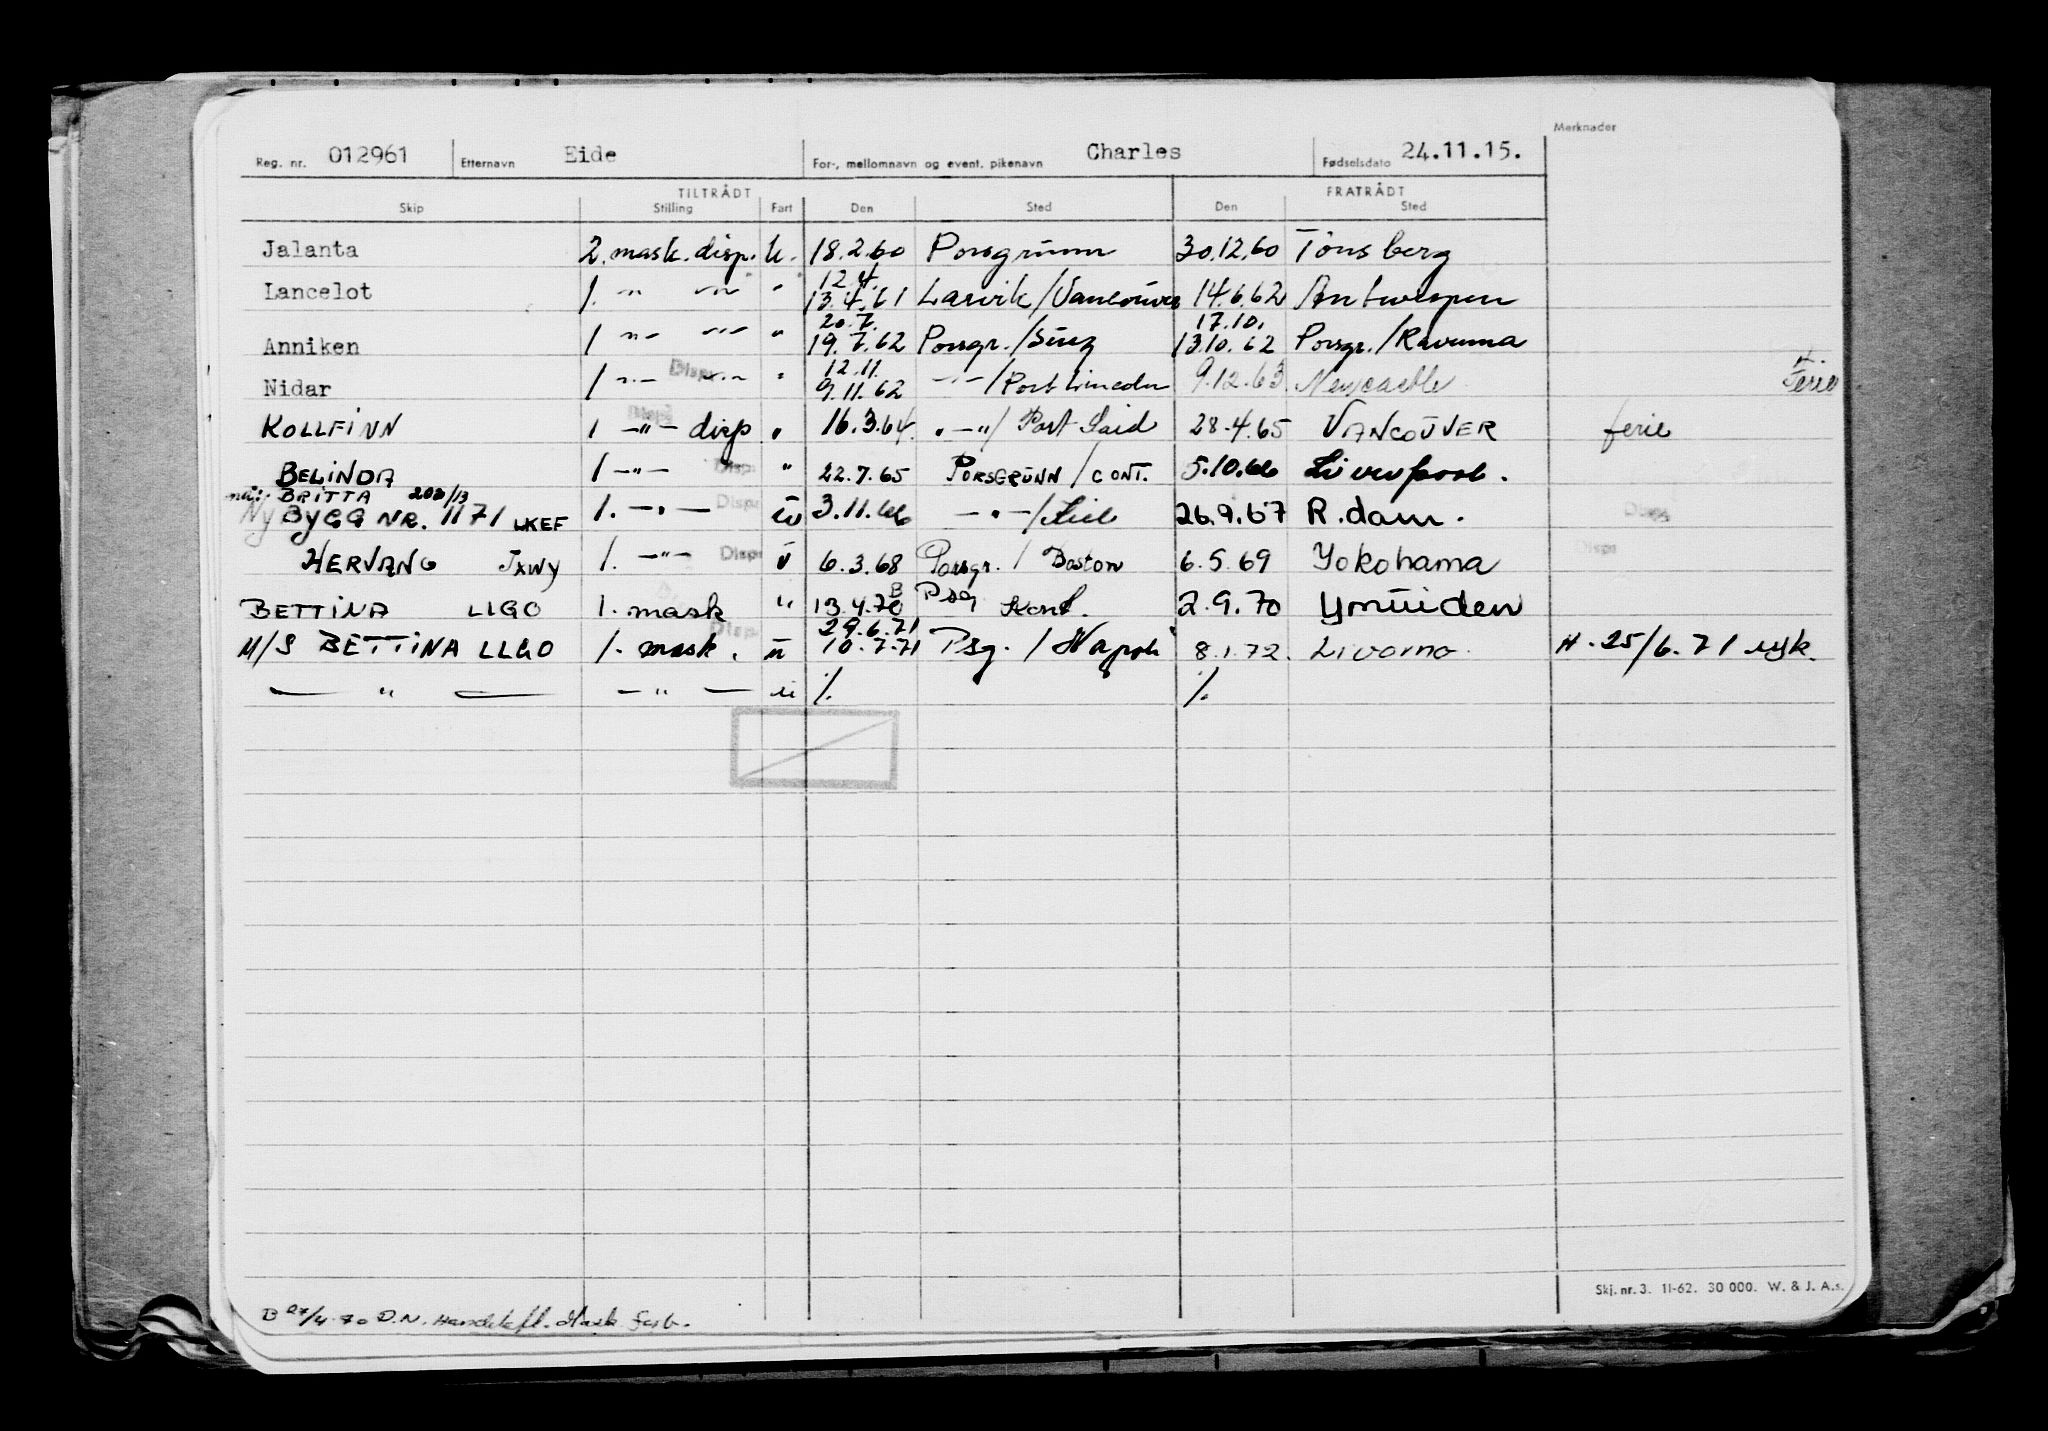 Merknader
Reg. nr. 012961 Etternavn Eide For-, mellomnavn og event. pikenavn Charles Fødselsdato 24.11.15.
TILTRÅDT FRATRÅDT
Skip Stilling Fart Den Sted Den Sted
Jalanta 2. mask. disp. u. 18.2.60 Porsgrunn 30.12.60 Tönsberg
12.4.
Lancelot 1. -"- -"- " 13.4.61 Larvik/Vancouver 14.6.62 Antwerpen
20.7. 17.10.
Anniken 1 -"- -"- " 19.7.62 Porsgr./Suez 13.10.62 Porsgr./Ravenna
Disp 12.11. F.
Nidar 1 -"- -"- " 9.11.62 -"-/Port Lincoln 9.12.63 Newcastle Ferie
KOLLFINN 1 -"- disp " 16.3.64. -"-/Port Said 28.4.65 VANCOUVER ferie
BELINDA 1 -"- Disp " 22.7.65 PORSGRUNN/CONT. 5.10.66 Liverpool.
nå: BRITTA
NyBYGG NR. 1171 LKEF 1. -"- Disp u 3.11.66 -"-/Kiel 26.9.67 R.dam. Disp
HERVANG JXWY 1. -"- Disp u 6.3.68 Porsgr. / Boston 6.5.69 Yokohama Disp
BETTINA LLGO 1. mask " 13.4.70 B Psg Kont. 2.9.70 Ymuiden
Disp 29.6.71
M/S BETTINA LLGO 1. mask. u 10.7.71 Psg. / Napoli 8.1.72. Livorno H. 25/6.71 syk.
— " — — " — u /. /.
Skj. nr. 3. 11-62. 30 000. W. & J. A.s.
B 27/4 70 D.N. Handelsfl. Mask forb.